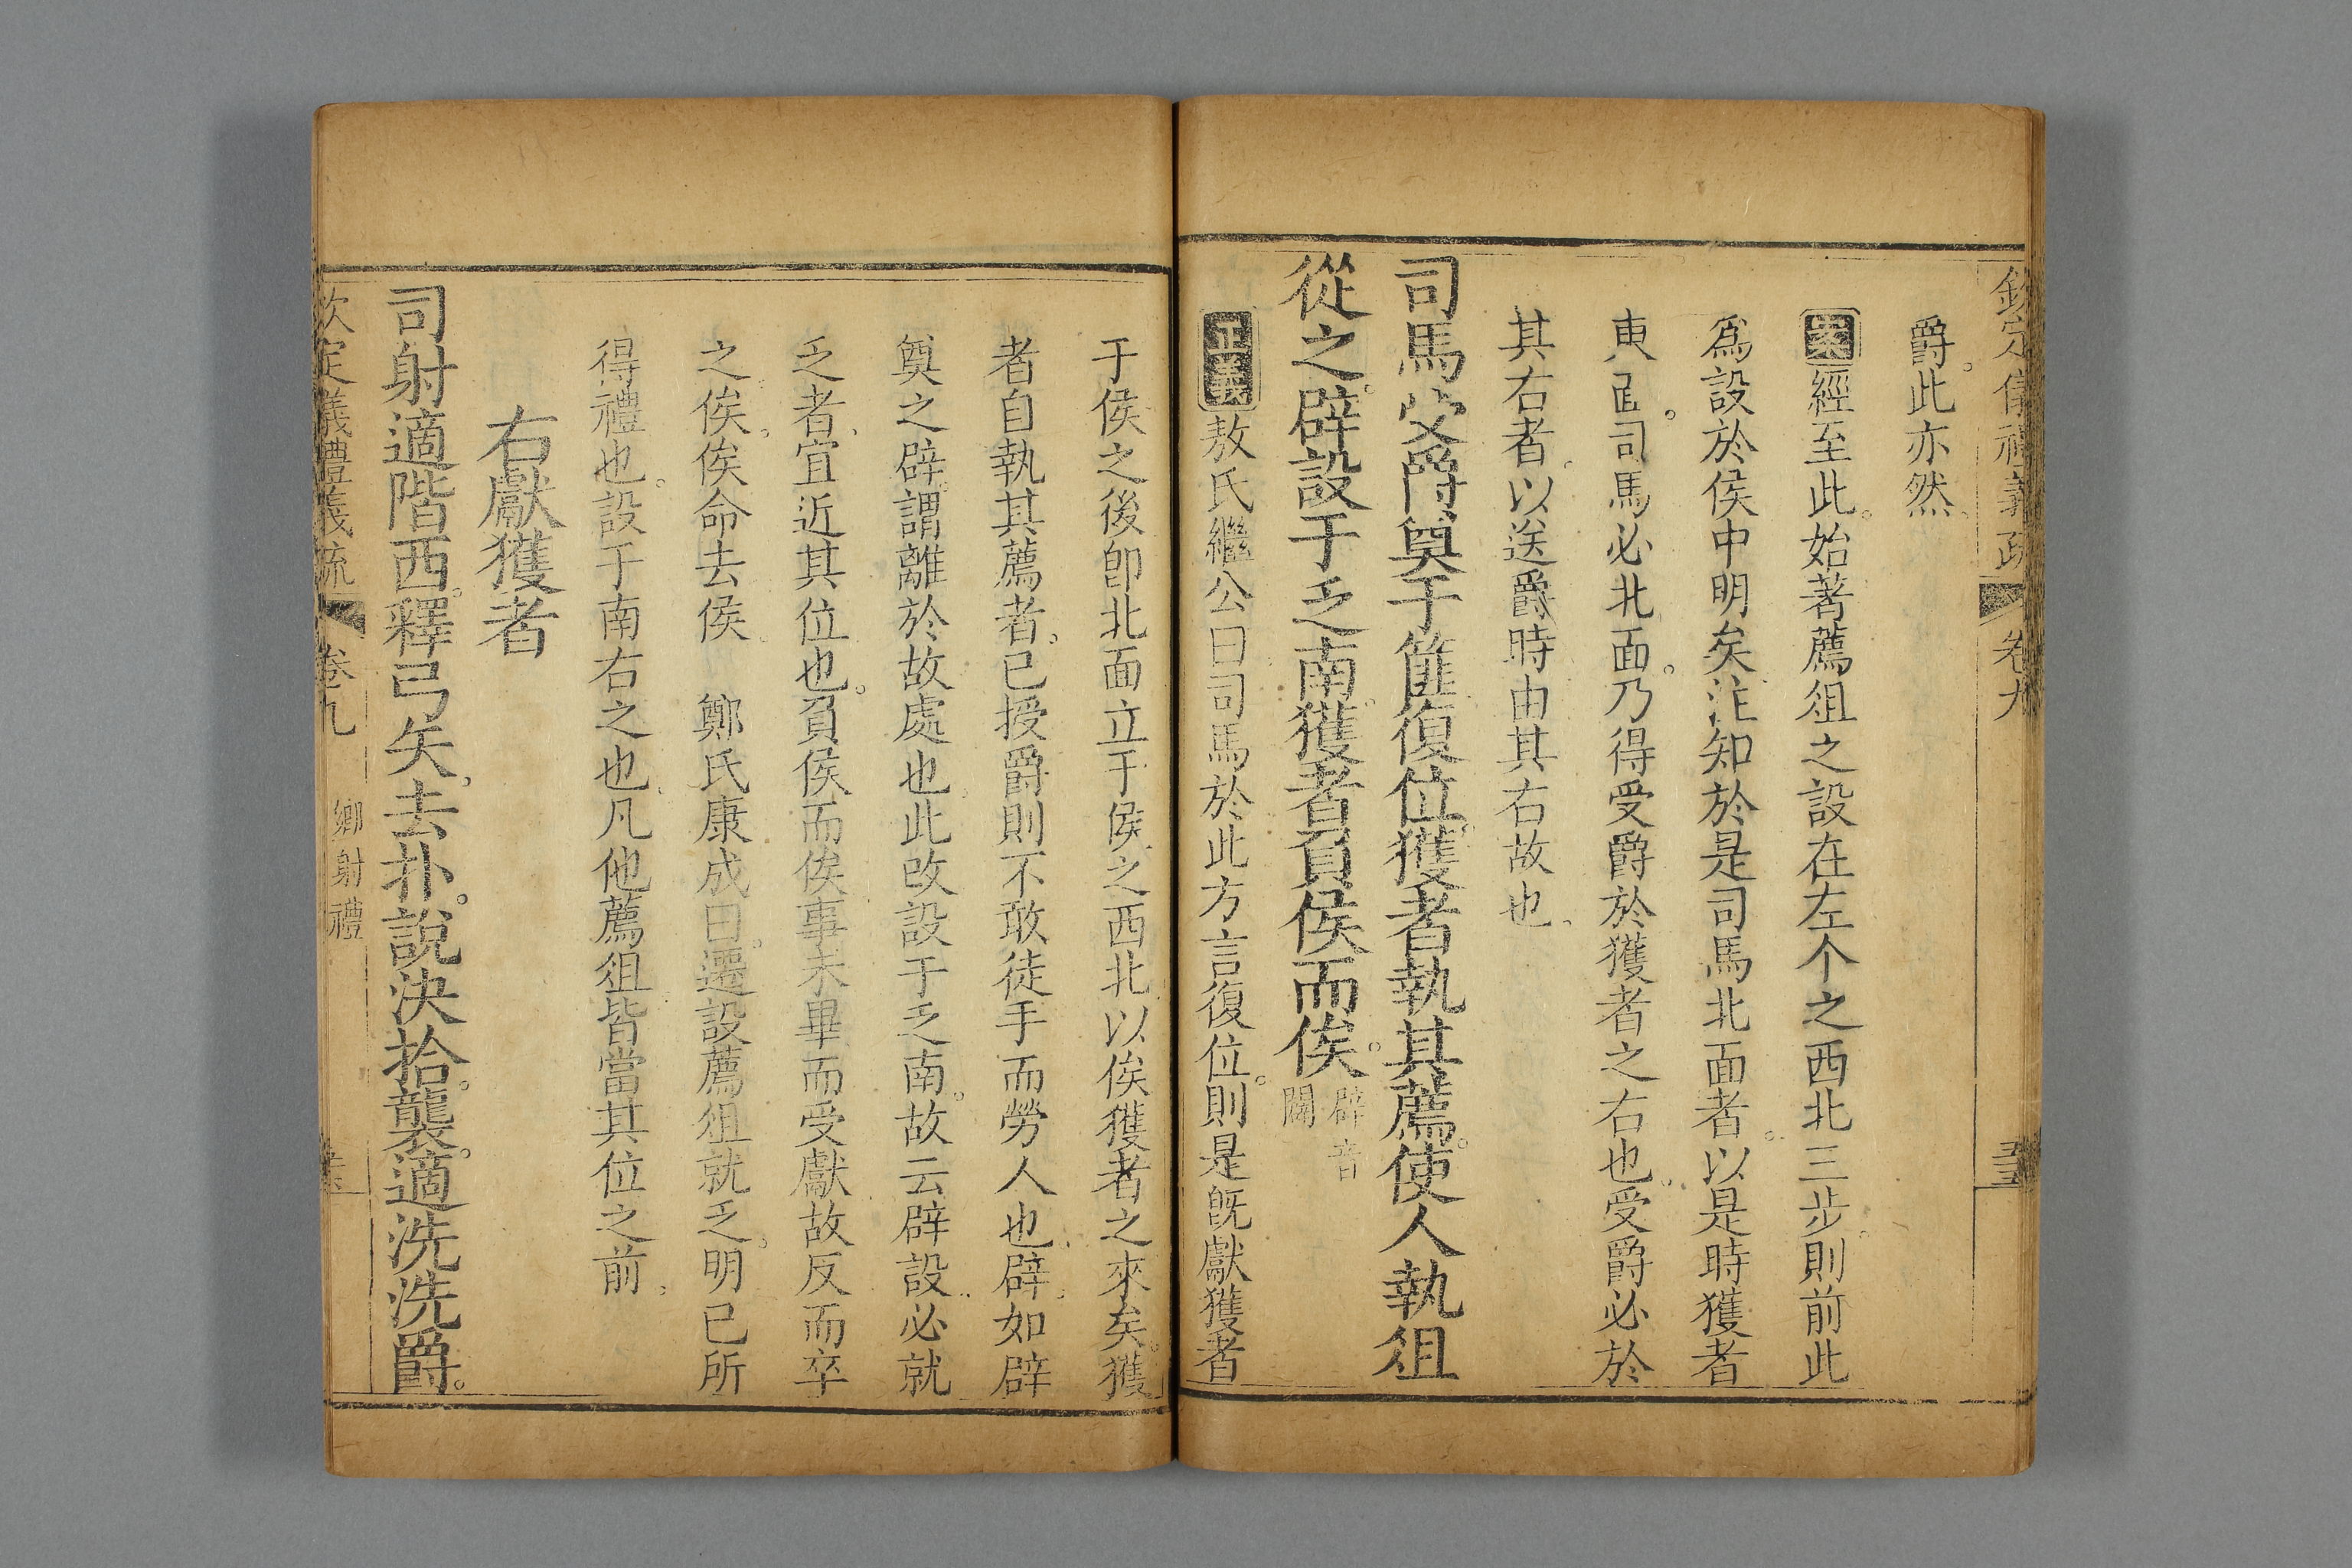 欽定儀禮義疏 卷九
爵。此亦然。
案經至此。始著薦俎之設在左个之西北三步。則前此
爲設於侯中明矣。注知於是司馬北面者。以是時獲者
東面。司馬必北面。乃得受爵於獲者之右也。受爵必於
其右者。以送爵時由其右故也。
司馬受爵奠于篚復位。獲者執其薦。使人執俎
從之。辟設于乏南。獲者負侯而俟。辟音闢
正義敖氏繼公曰。司馬於此方言復位。則是旣獻獲者
于侯之後卽北面立于侯之西北。以俟獲者之來矣。獲
者自執其薦者。已授爵則不敢徒手而勞人也。辟。如辟
奠之辟。謂離於故處也。此改設于乏南。故云辟設。必就
乏者。宜近其位也。負侯而俟。事未畢而受獻。故反而卒
之俟。俟命去侯。 鄭氏康成曰。遷設薦俎就乏。明已所
得禮也。設于南右之也。凡他薦俎皆當其位之前。
右獻獲者
司射適階西。釋弓矢。去扑。說決拾。襲。適洗洗爵。
欽定儀禮義疏 卷九 鄉射禮